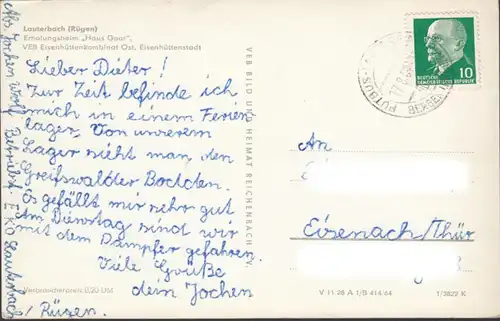 Lauterbach (Rügen)
Erholungsheim „Haus Goor"
VEB Eisenhüttenkombinat Ost, Eisenhüttenstadt
Lieber Dieter!
Zur Zeit befinde ich
mich in einem Ferien
lager. Von unserem
Lager sieht man den
Greifswalder Bodden.
Es gefällt mir sehr gut.
Am Dienstag sind wir
mit dem Dampfer gefahren.
Viele Grüße
dein Jochen
Abs. Jochen Wolf Betriebsf. EKO Lauterbach
/ Rügen.
Verbraucherpreis 0,20 DM
VEB BILD UND HEIMAT REICHENBACH I. V.
PUTBUS
DEUTSCHE
DEMOKRATISCHE REPUBLIK
10
An
Eisenach/Thür
V 11 28 A 1/B 414/64
1/3822 K